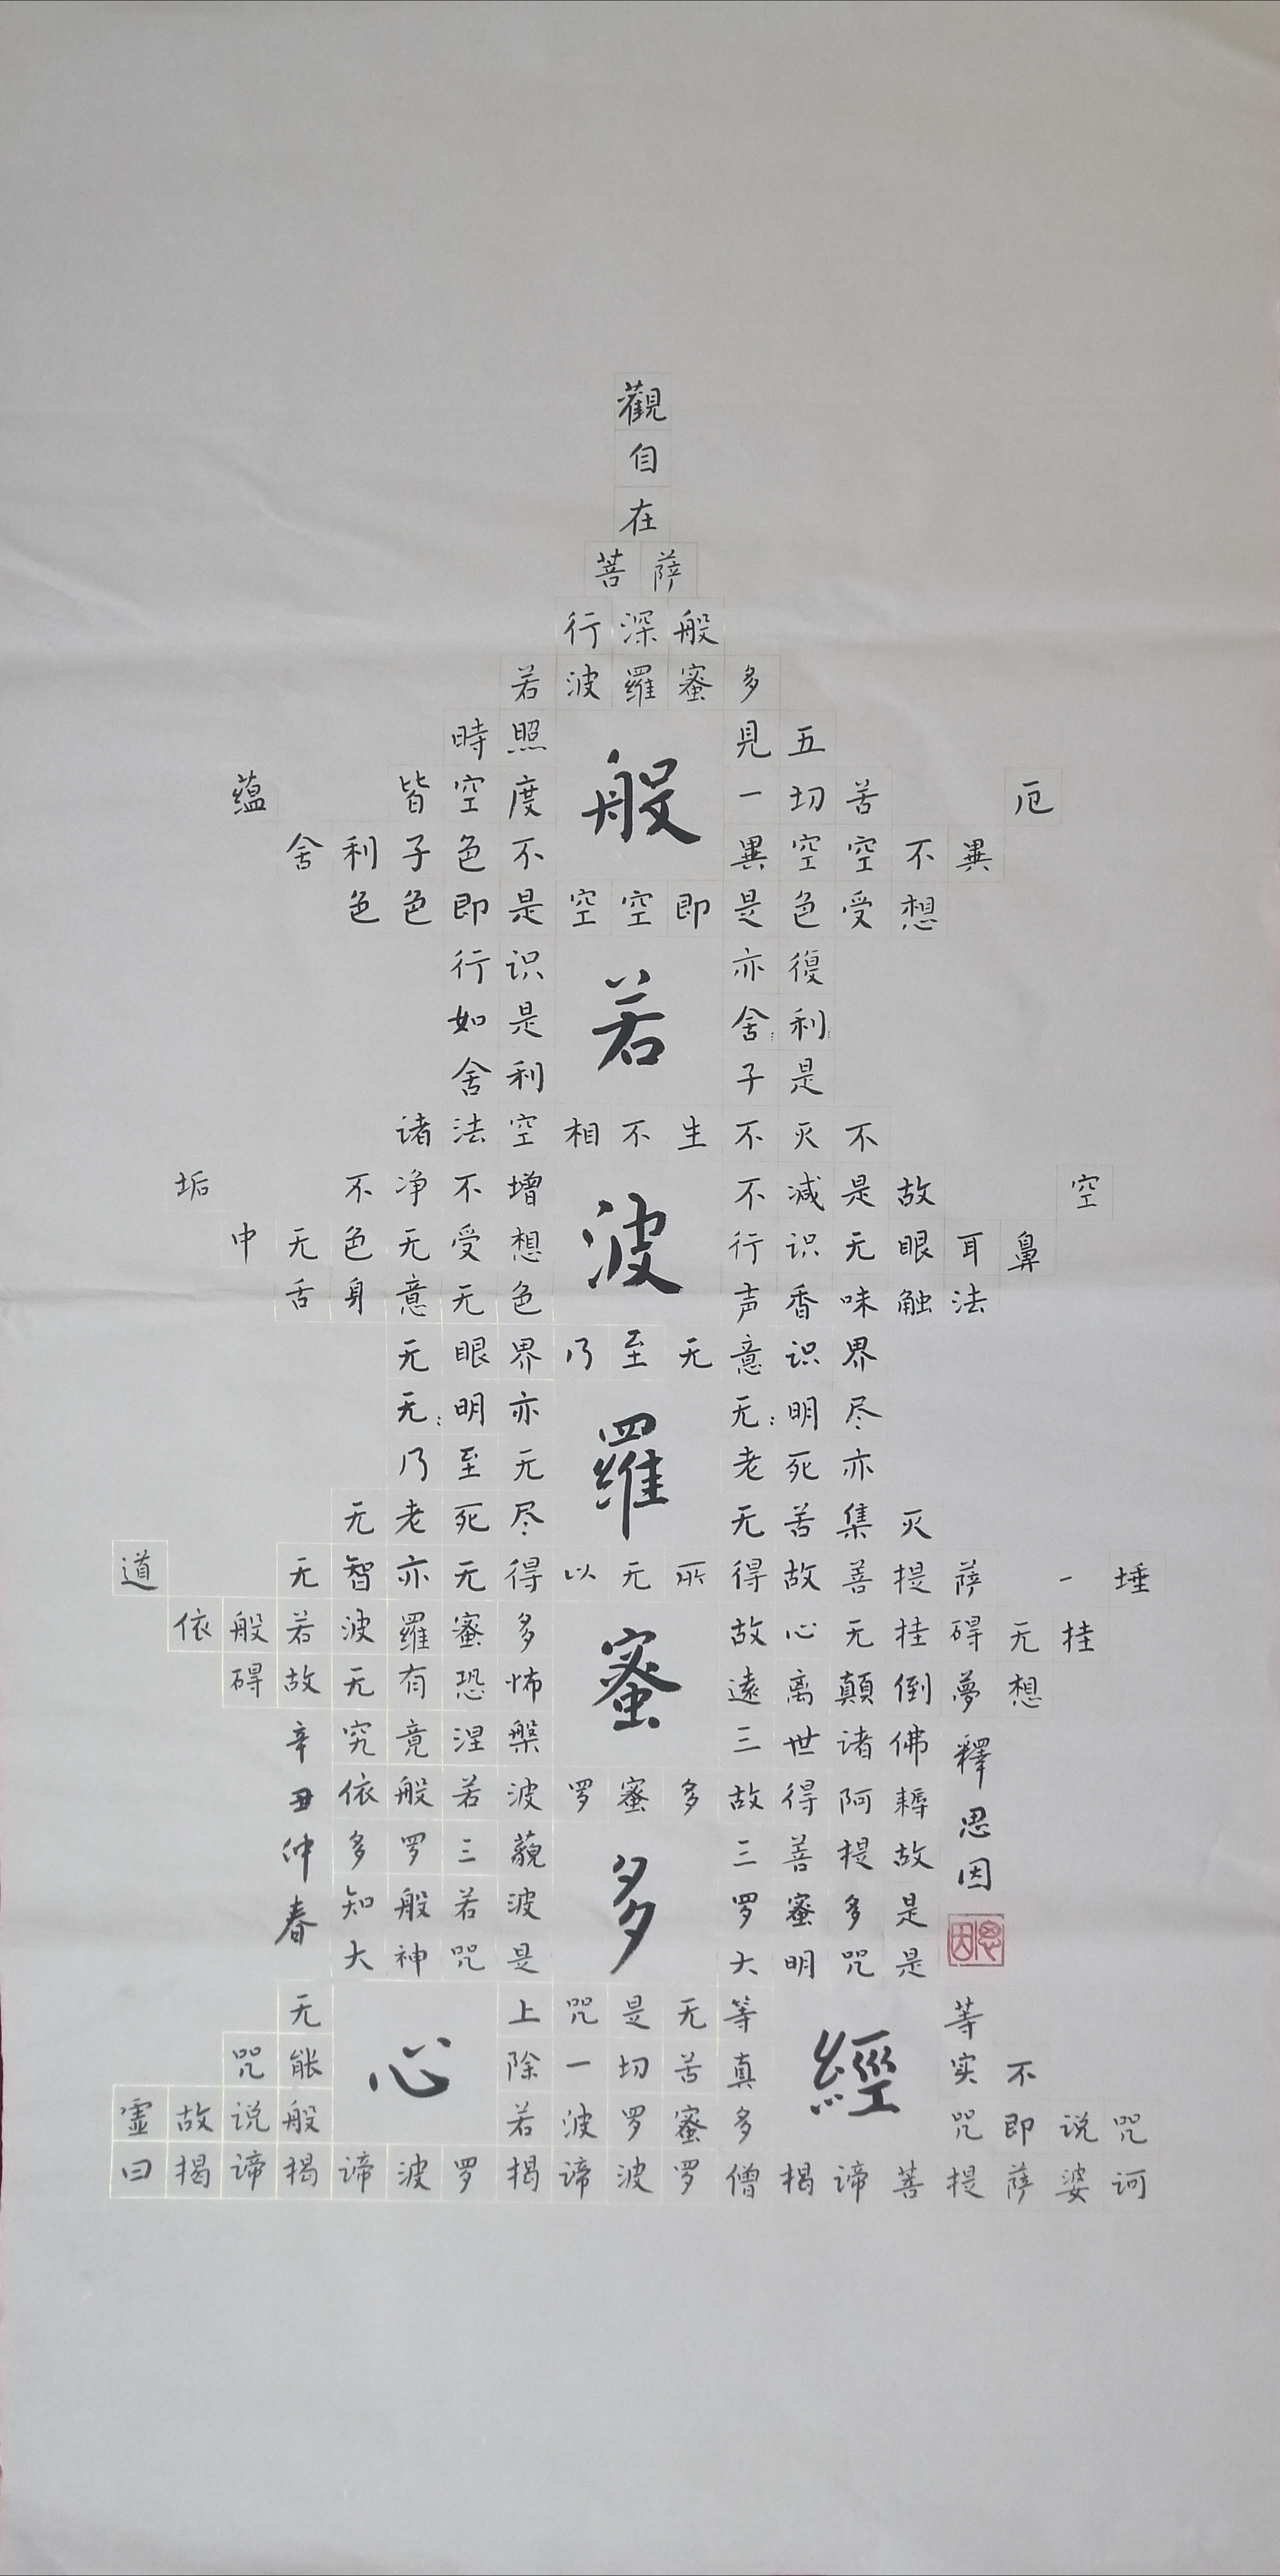 觀
自
在
菩萨
行深般
若波羅蜜多
時照見五
蕴皆空度一切苦厄
舍利子色不異空空不異
色色即是空空即是色受想
行识亦復
如是舍利
舍利子是
诸法空相不生不灭不
垢不净不增不减是故空
中无色无受想行识无眼耳鼻
舌身意无色声香味触法
无眼界乃至无意识界
无:明亦无:明尽
乃至无老死亦
无老死尽无苦集灭
道无智亦无得以无所得故菩提萨一埵
依般若波羅蜜多故心无挂碍无挂
碍故无有恐怖遠离顛倒夢想
究竟涅槃三世诸佛
依般若波罗蜜多故得阿耨
多罗三藐三菩提故
知般若波罗蜜多是
大神咒是大明咒是
无上咒是无等等
咒能除一切苦真实不
虚故说般若波罗蜜多咒即说咒
曰揭谛揭谛波罗揭谛波罗僧揭谛菩提萨婆诃
般
若
波
羅
蜜
多
心經
辛丑仲春
釋思因
思因